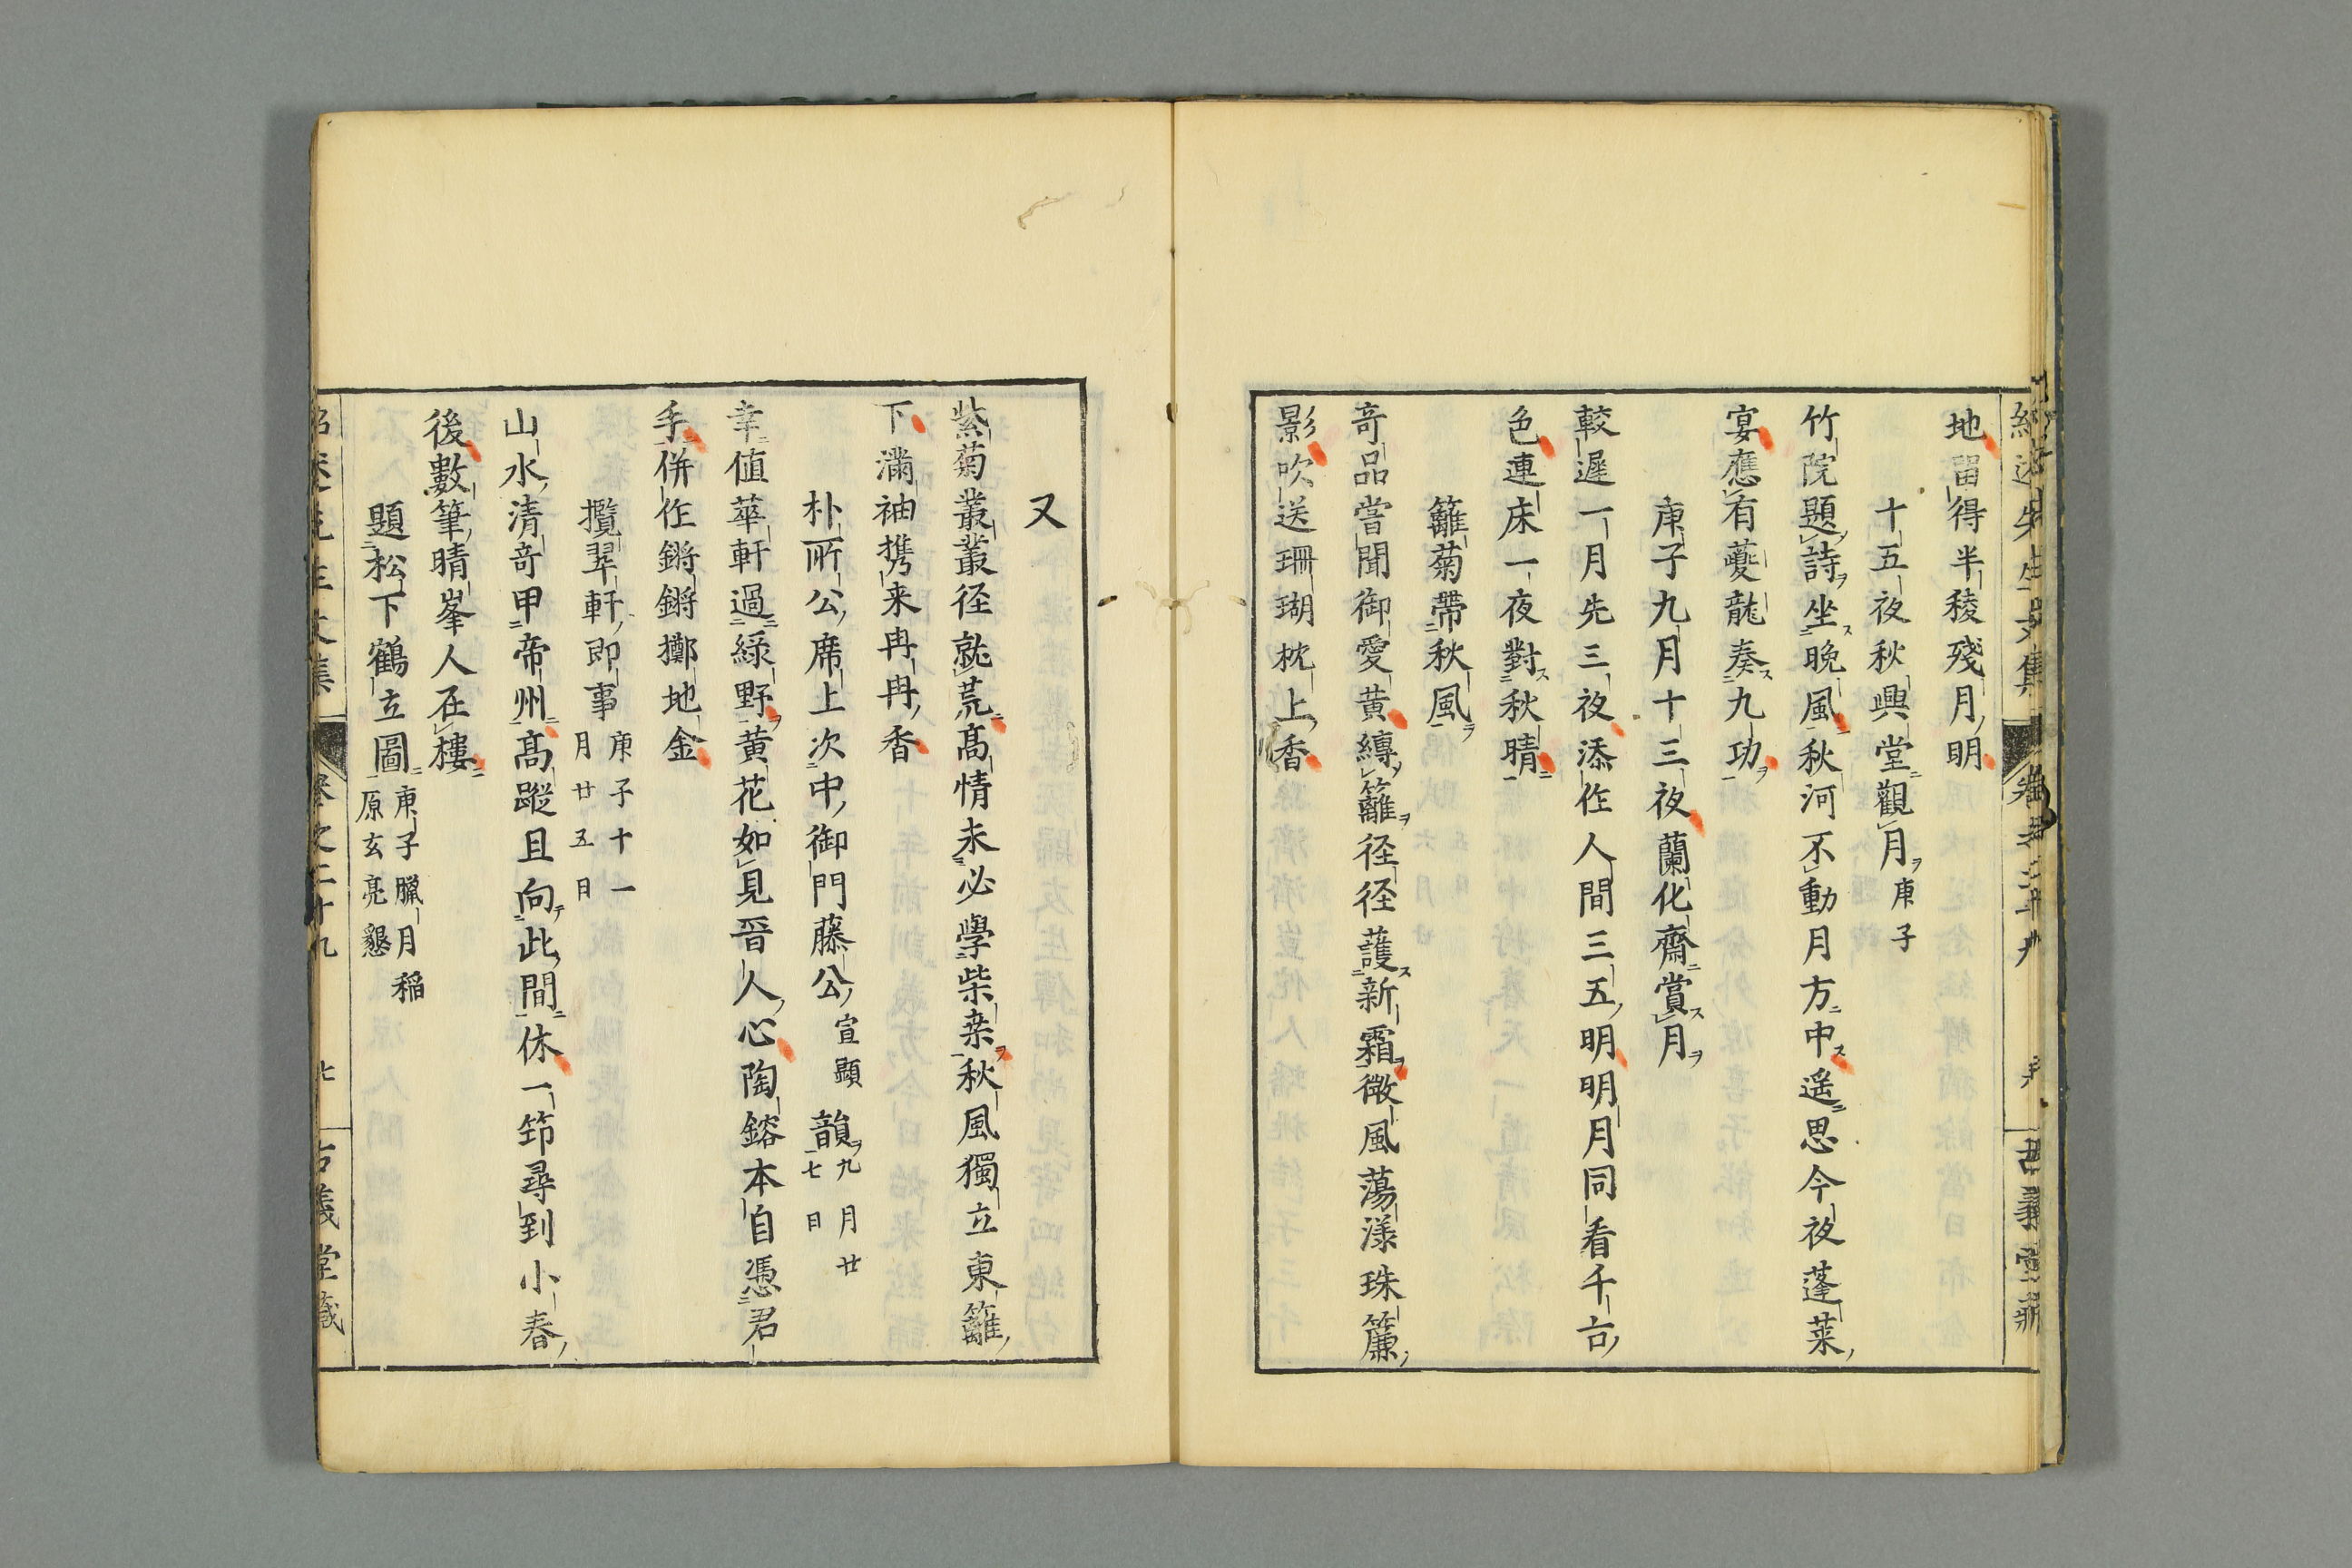 地留得半稜殘月明
十五夜秋興堂觀月庚子
竹院題詩坐晩風秋河不動月方中遥思今夜蓬莱
宴應有夔龍奏九功
庚子九月十三夜蘭化齋賞月
較遲一月先三夜添作人間三五明明月同看千古
色連床一夜對秋晴
籬菊帶秋風
奇品嘗聞御愛黃縳籬径径護新霜微風蕩漾珠簾
影吹送珊瑚枕上香
又
紫菊叢叢径就荒髙情未必學柴桒秋風獨立東籬
下滿袖携来冉冉香
朴所公席上次中御門藤公宣顯韻九月廿
七日
幸値華軒過緑野黃花如見晉人心陶鎔本自憑君
手併作鏘鏘擲地金
攬翠軒即事庚子十一
月廿五日
山水清奇甲帝州髙蹤且向此間休一筇尋到小春
後數筆晴峯人在樓
題松下鶴立圖庚子臘月稲
原玄亮懇
卷之二十九
古義堂藏